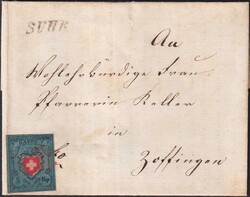 SUHR
An
Wohlehrwürdige Frau
Pfarrerin Keller
in
Zofingen